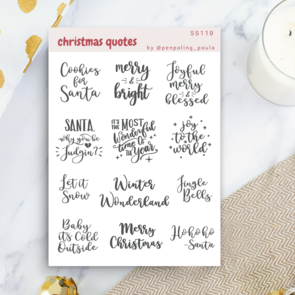 SS119
christmas quotes
by @penpaling_paula
Cookies
for
Santa
merry
&
bright
Joyful
merry
&
blessed
SANTA,
why you be
Judgin?
IT'S THE MOST
Wonderful
time OF THE
Year
joy
to the
world
Let it
Snow
Winter
Wonderland
Jingle
Bells
Baby
it's Cold
Outside
Merry
Christmas
Hohoho
-Santa